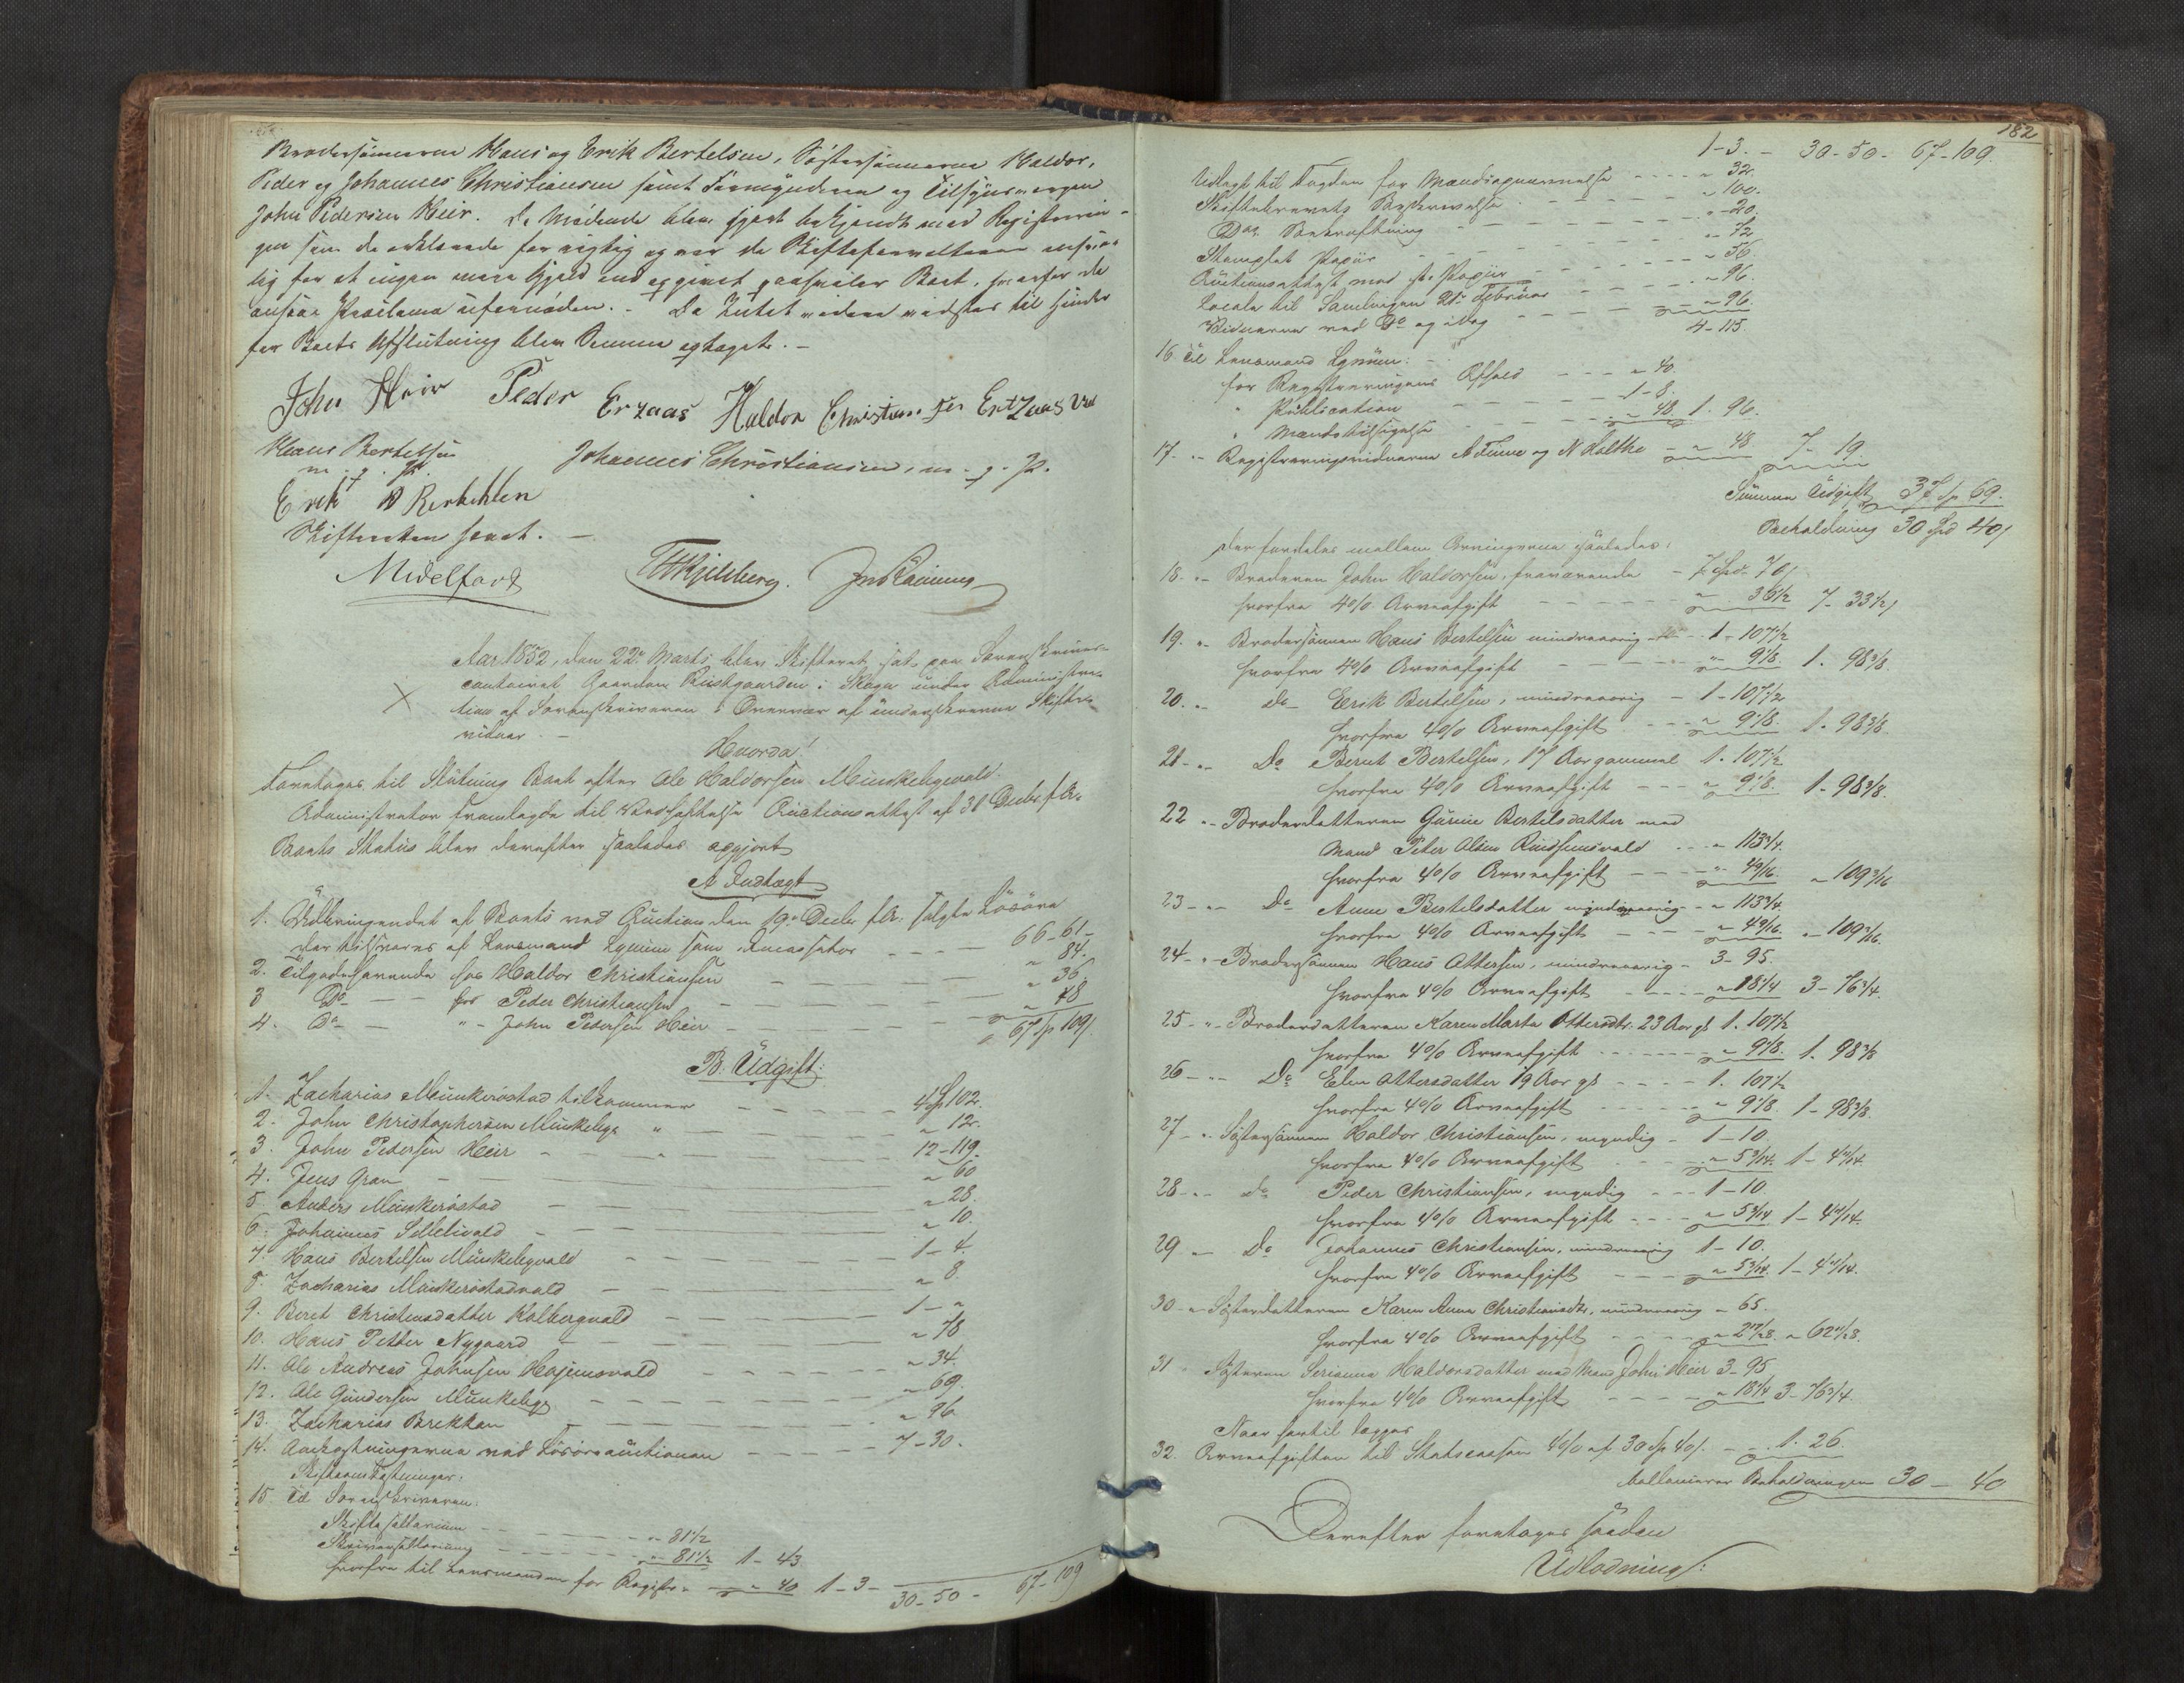 Brodersønnerne Hans og Erik Bertelsen, Søstersønnerne Haldor,
Peder og Johannes Christiansen samt Formynderen og Tilsynsværgen
John Pedersen Heir. De Mødende blev gjort bekjendt med Registrerin-
gen som de erklærede for rigtig og var de Skifteforvalteren ansvar-
lig for at ingen mere Gjeld end opgivet paahviler Boet, hvorfor de
ansaae Proclama ufornøden. - Da Intet videre vidstes til Hinder
for Boets Afslutning blev Denne optaget. -
John Heir Peder Erzaas Haldor Christiansen Erzaas
Hans Bertelsen Johannes Christiansen, m. f. P.
m. f. P.
Erik B Bertelsen
Skifteretten hævet. -
Midelfart
Aar 1852, den 22de Marts blev Skifteret sat paa Sorenskriver-
contoiret Gaarden Rustgaarden i Skogn under Administra-
tion af Sorenskriveren i Overvær af underskrevne Skifte-
vidner. -
Hvorda!
Foretoges til Slutning Boet efter Ole Haldorsen Munkebygvald.
Administrator fremlagde til Vedhæftelse Auctionsattest af 31 Decbr. f. A.
Boets Status blev derefter saaledes opgjort
A Indtægt
1. Udbringendet af Boets ved Auction den 19de Decbr f. A. solgte Løsøre
der tilsvares af Lensmand Lynum som Incassator - - - 66-61-
2. Tilgodehavende hos Haldor Christiansen - - - " 84.
3 Do - - hos Peder Christiansen - - - " 36
4. Do - " - John Pedersen Heir - - - " 48
67 Sp 109/
B. Udgift:
1. Zacharias Munkerøstad tilkommer - - - 4 Sp 102.
2. John Christophersen Munkebye " - - - " 12.
3. John Pedersen Heir - - - 12-119.
4. Jens Gran - - - " 60
5 Anders Munkerøstad - - - " 28.
6. Johannes - - - " 10.
7. Hans Bertelsen Munkebyvald - - - 1-4.
8. Zacharias Munkerøstadvald - - - " 8.
9. Beret Christensdatter Kolbergvald - - - 1-"
10. Hans Petter Nygaard - - - " 78
11. Ole Andreas Johnsen Hojemsvald - - - " 34.
12. Ole Gundersen Munkebye - - - " 69.
13. Zacharias Brekken - - - " 96
14. Omkostningerne ved Løsøreauctionen - - - 7-30.
Skifteomkostninger:
15. Til Sorenskriveren:
Skiftesallarium - - - " 81 1/2
Skriversallarium - - - " 81 1/2 1-43
hvorfra til Lensmanden for Registr. - " 40 1-3-
30-50- 67-109
182
1-3. - 30-50- 67-109.
Udlagt til Fogden for Mandsopnævnelse - - - " 32.
Skiftebrevets Beskrivelse - - - " 100.
Dets Bekræftning - - - " 20
Stemplet Papiir - - - " 72
Auctionsattest med st. Papiir - - - " 56.
Locale til Samlingen 21de Februar - - - " 96.
Vidnerne ved Do og idag - - - " 96.
4-115.
16. Til Lensmand Lynum:
for Registreringens Afhold - - - " 40
" Publication - - - 1-8.
" Mandstilsigelse - - - " 48. 1. 96.
17. - " Registreringsvidnerne A Tinne og N Holthe - " 48 7-19.
Summa Udgift 37 Sp 69.
Beholdning 30 Spd 40/
der fordeles mellem Arvingerne saaledes:
18. " Broderen John Haldorsen, fraværende - 7 Spd 70/
hvorfra 4% Arveafgift - - - " 36 1/2 7-33 1/2/
19. " Brodersønnen Hans Bertelsen mindreaarig - 1-107 1/2
hvorfra 4% Arveafgift - - - " 9 1/8. 1. 98 3/8.
20. " do Erik Bertelsen, mindreaarig - 1-107 1/2
hvorfra 4% Arveafgift - - - " 9 1/8. 1. 98 3/8.
21 - " Do Bernt Bertelsen, 17 Aar gammel 1. 107 1/2
hvorfra 4% Arveafgift - - - " 9 1/8. 1-98 3/8.
22 " - Broderdatteren Gurine Bertelsdatter med
Mand Peter Olsen - - - " 113 3/4.
hvorfra 4% Arveafgift - - - " 4 9/16. " 109 3/16
23 - " Do Anne Bertelsdatter mindreaarig - " 113 3/4
hvorfra 4% Arveafgift - - - " 4 9/16 " - 109 3/16.
24 - " - Brodersønnen Hans Ottersen, mindreaarig - 3-95.
hvorfra 4% Arveafgift - - - " 18 1/4 3-76 3/4.
25 - " - Broderdatteren Karen Marta Ottersdtr. 23 Aar gl 1. 107 1/2
hvorfra 4% Arveafgift - - - " 9 1/8. 1. 98 3/8
26 - " Do Elen Ottersdatter 19 Aar gl - - - 1. 107 1/2
hvorfra 4% Arveafgift - - - " 9 1/8 1-98 3/8.
27 - " Søstersønnen Haldor Christiansen, myndig - 1-10
hvorfra 4% Arveafgift - - - " 5 3/14. 1-4 11/14.
28 - " do Peder Christiansen, myndig - - - 1-10.
hvorfra 4% Arveafgift - - - " 5 3/14 1-4 11/14.
29 " Do Johannes Christiansen, mindreaarig 1-10.
hvorfra 4% Arveafgift - - - " 5 3/14. 1-4 11/14.
30 - " Søsterdatteren Karen Anna Christiansdtr, mindreaarig " 65.
hvorfra 4% Arveafgift - - - " 2 17/28. " 62 11/28.
31 Søsteren Serianna Haldorsdatter med Mand John Heir 3-95
hvorfra 4% Arveafgift - - - " 18 1/4 3-76 3/4.
Naar hertil lægges
32. Arveafgiften til Statscassen 4% af 30 Sp 40/. - - 1. 26.
balancerer Beholdningen 30-40
Derefter foretoges saadan
Udlodning: